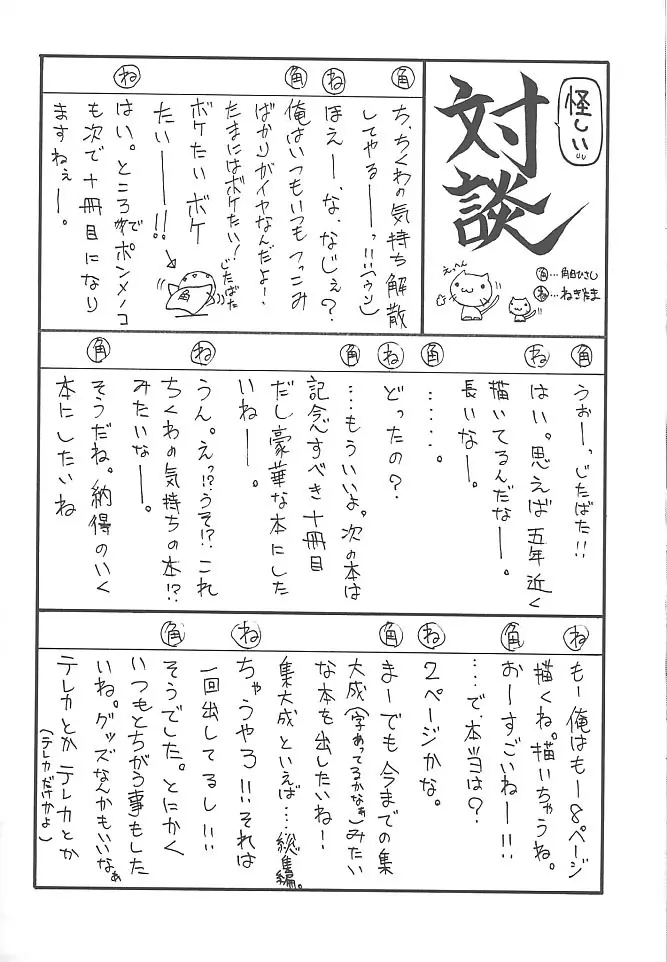 怪しい
対談
角…角日ひさし
ね…ねぎたま
えっへん
角
ち、ちくわの気持ち解散
してやるーーっ!!(ウソ)
ね
ほえーー、な、なじぇ?
角
俺はいつもいつもつっこみ
ばかりがイヤなんだよ!
たまにはボケたい!
ボケたいボケ
たいーー!!
じたばた
角
ね
はい。ところでポンメノコ
も次で十冊目になり
ますねぇーー。
角
うぉーーっ、じたばた!!
ね
はい。思えば五年近く
描いてるんだなーー。
長いなーー。
角
……。
ね
どったの?
角
…もういいよ。次の本は
記念すべき十冊目
だし豪華な本にした
いねーー。
ね
うん。えっ!?うそ!?これ
ちくわの気持ちの本!?
みたいなーー。
角
そうだね。納得のいく
本にしたいね
ね
もー俺はもー8ページ
描くね。描いちゃうね。
角
おーすごいねー!!
…で、本当は?
ね
2ページかな。
角
まーでも今までの集
大成(字あってるかなぁ)みたい
な本を出したいね!
集大成といえば…総集編。
ね
ちゃうやろ!!それは
一回出してるし!!
角
そうでした。とにかく
いつもとちがう事もした
いね。グッズなんかもいいなぁ
テレカとかテレカとか
(テレカだけかよ)